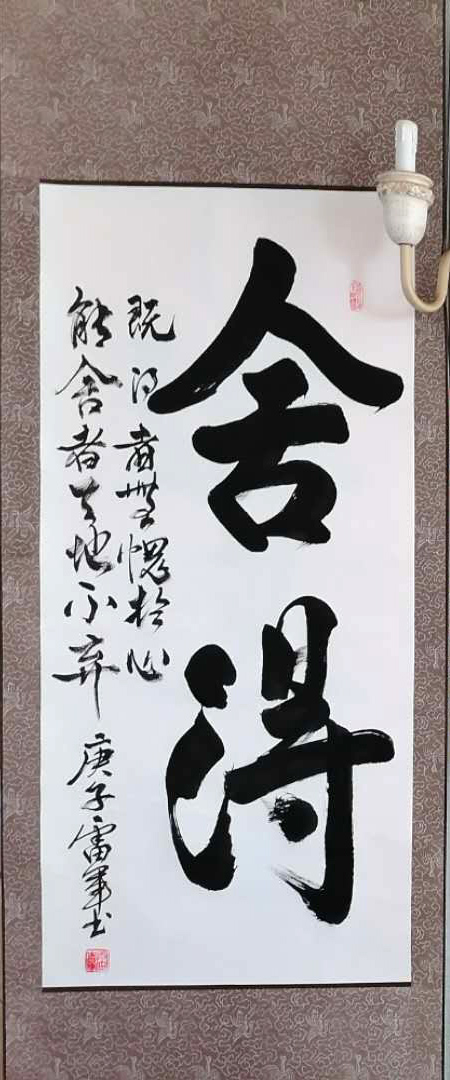 舍得
既得者無愧於心
能舍者天地不弃
庚子雷军书